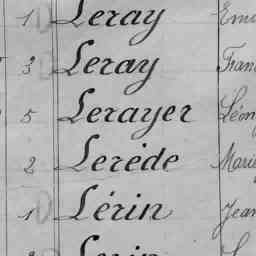 1 Leray
3 Leray Fran
5 Lerayer Léon
2 Lerède Marie
1 Lérin Jean